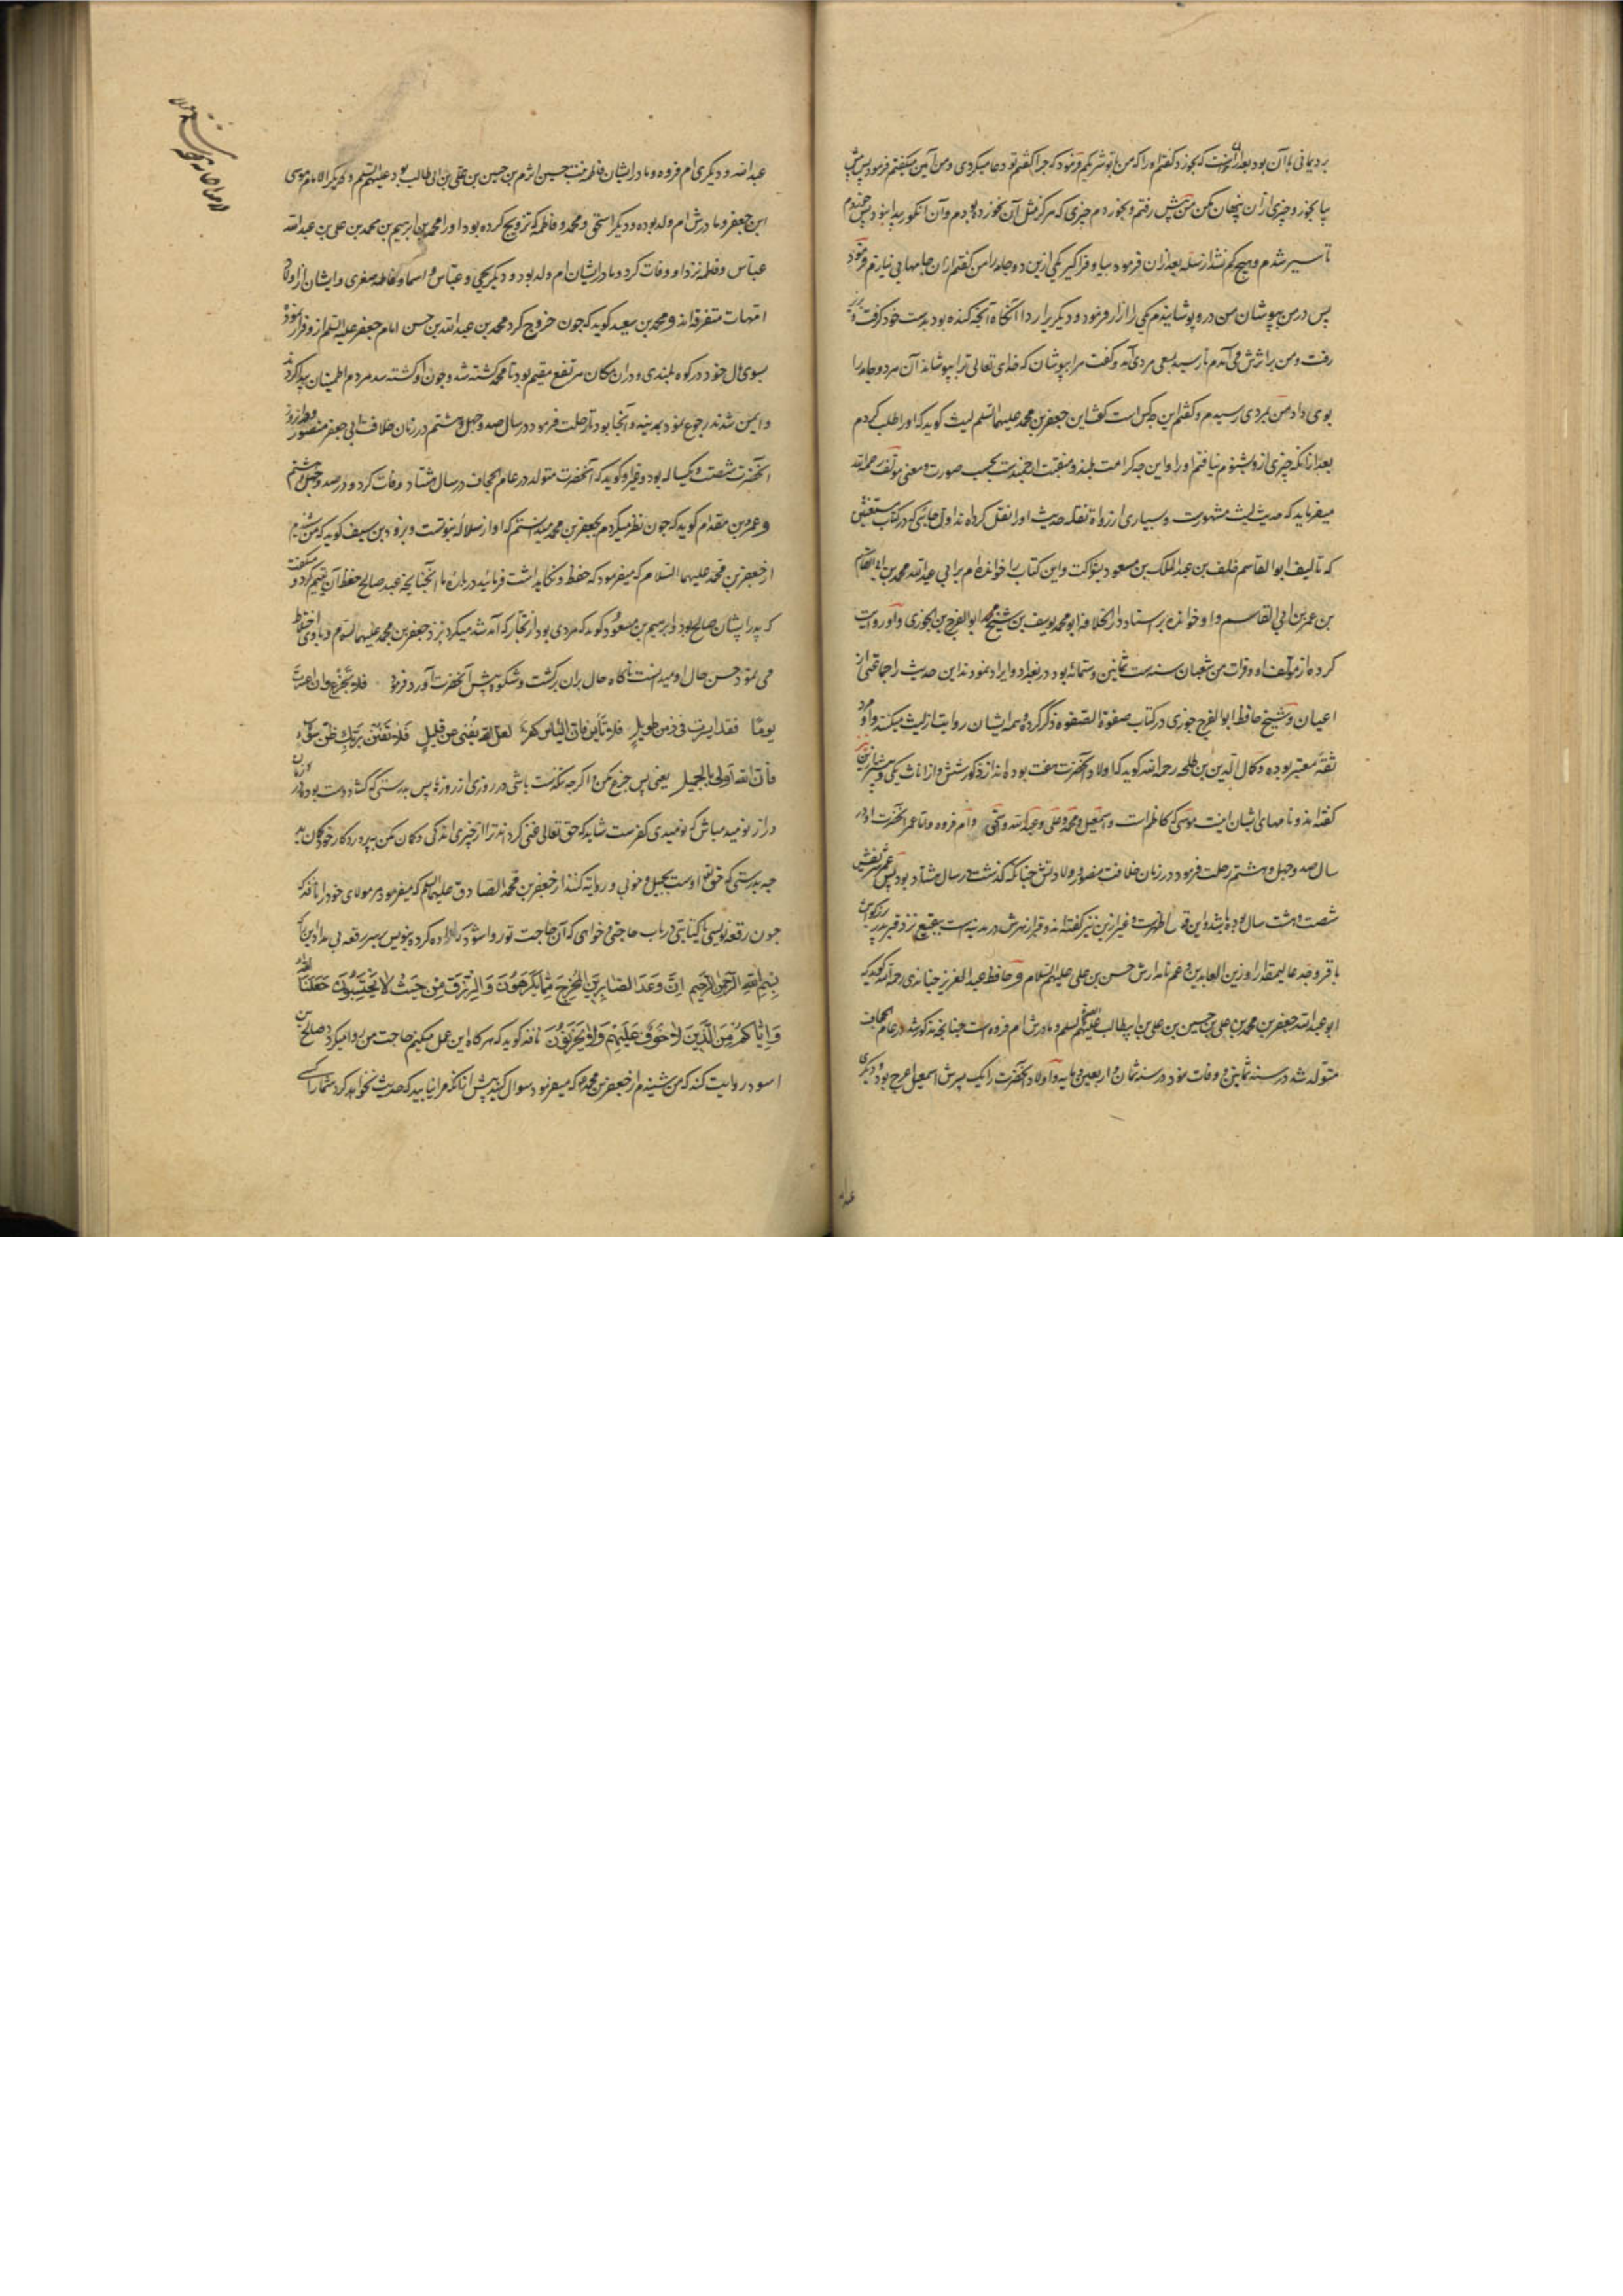 بردیمانی با آن بود بعد ازان که بخورد گفتم او را که من با تو شریکم فرمود که چرا گفتم تو دعا میکردی و من آمین میگفتم فرمود پس پیش
بیا بخور و چیزی ازان پنهان مکن من پیش رفتم و بخوردم چیزی که هرگز مثل آن نخورده بودم و آن انگور بیدانه بود پس خوردم
تا سیر شدم و هیچ کم نشد از سله بعد ازان فرمود بیا و فراگیر یکی ازین دو جامه را من گفتم ازان جامها بی نیازم فرمود
پس در من بپوشان من درو پوشانیدم یکی را ازار فرمود و دیگر را ردا آنگاه آنچه کنده بود بدست خود گرفت و
رفت و من بر اثرش می آمدم تا رسید بسعی مردی آمد و گفت مرا بپوشان که خدای تعالی ترا بپوشاند آن هر دو جامه را
بوی داد من بمردی رسیدم و گفتم این چه کس است گفت این جعفر بن محمد علیهما السلم لیث گوید که او را طلب کردم
بعد ازانکه چیزی ازو بشنوم نیافتم او را و این چه کرامت بلند و منقبت ارجمندست بحسب صورت و معنی مولف رحمه الله
میفرماید که حدیث لیث مشهورست و بسیاری از رواة نقله حدیث او را نقل کرده اند اول جائی که در کتاب مستغیثین
که تالیف ابو القاسم خلف بن عبد الملک بن مسعود بشکوالست و این کتاب را خوانده ام برابی عبد الله محمد بن ابی القاسم
بن عمر بن ابی القاسم و او خوانده بر استاد دار الخلافه ابو محمد یوسف بن شیخ ابو الفرج بن الجوزی و او روایت
کرده از مولف او و قرات من شعبان سنه ست ثمانین و ستمائه بود در بغداد و ایراد نموده اند این حدیث را جماعتی از
اعیان و شیخ حافظ ابو الفرج جوزی در کتاب صفوة الصفوه ذکر کرده و همه ایشان روایت از لیث میکنند و او
ثقه معتبر بوده و کمال الدین بن طلحه رحمه الله گوید که اولاد آنحضرت هفت بوده اند از ذکور شش و از اناث یکی و بیشتر ازین
گفته اند و نامهای ایشان اینست موسی که کاظم است و اسمعیل و محمد و علی و عبد الله و اسحق و ام فروه و اما عمر آنحضرت او در
سال صد و چهل و هشتم رحلت فرمود در زمان خلافت منصور و ولادتش چنانکه گذشت در سال هشتاد بود پس عمر شریفش
شصت و هشت سال بوده باشد و این اظهرست و غیر ازین نیز گفته اند و قبر ازهرش در مدینه است ببقیع نزد قبر پدر بزرگوارش
باقر و جد عالیمقدار او زین العابدین و عم نامدارش حسن بن علی علیهم السلام و حافظ عبد العزیز جنابذی رحمه الله گوید که
ابو عبد الله جعفر بن محمد بن علی بن حسین بن علی بن ابیطالب علیهم السلم و مادرش ام فروه است چنانچه مذکور شد در عام الجحاف
متولد شد در سنه ثمانین و وفات نمود در سنه ثمان و اربعین و مایه و اولاد آنحضرت را یک پسرش اسمعیل اعرج بود و دیگری
عبد
عبد الله و دیگری ام فروه و مادر ایشان فاطمه بنت حسین اثرم بن حسین بن علی بن ابی طالب بود علیهم السلم و دیگر الامام موسی
ابن جعفر و مادرش ام ولد بوده و دیگر اسحق و محمد و فاطمه که تزویج کرده بود او را محمد بن ابرهیم بن محمد بن علی بن عبد الله
عباس و فاطمه نزد او وفات کرد و مادر ایشان ام ولد بود و دیگر یحیی و عباس و اسما و فاطمه صغری و ایشان از اولاد
امهات متفرقه اند و محمد بن سعید گوید که چون خروج کرد محمد بن عبد الله بن حسن امام جعفر علیه السلم ازو فرار نمود
بسوی مال خود در کوه بلندی و دران مکان مرتفع مقیم بود تا محمد کشته شد و چون او کشته شد مردم اطمینان پیدا کردند
و ایمن شدند رجوع نمود بمدینه و آنجا بود تا رحلت فرمود در سال صد و چهل و هشتم در زمان خلافت ابی جعفر منصور
آنحضرت شصت و یکساله بود و غیر او گوید که آنحضرت متولد در عام الجحاف در سال هشتاد وفات کرد در صد و چهل و هشتم
و عمر بن مقدام گوید که چون نظر میکردم بجعفر بن محمد میدانستم که او از سلاله نبوتست و برذون بن سیف گوید که من شنیدم
از جعفر بن محمد علیهما السلام که میفرمود که حفظ و نگاه داشت فرمائید درباره ما آنچنانچه عبد صالح حفظ آن یتیم کرد و گفت
که پدر ایشان صالح بود و ابرهیم بن مسعود گوید که مردی بود از تجار که آمد شد میکرد نزد جعفر بن محمد علیهما السلم و باوی اختلاط
می نمود حسن حال او میدانست ناگاه حال بران برگشت و شکوه پیش آنحضرت آورد فرمود فلا تجزع و ان اعسرت
یومًا فقد ایسرت فی زمن طویل فلا تیأس فان الیأس کفر لعل الله یغنی عن قلیل فلا تظنن بربک ظن سوء
فان الله اولی بالجمیل یعنی پس جزع مکن و اگرچه تنگدست باشی در روزی از روزها پس بدرستی که گشاده دست بوده در زمان
دراز نومید مباش که نومیدی کفرست شاید که حق تعالی غنی گرداند ترا از چیزی اندکی و گمان مکن بپروردگار خود گمان بد
چه بدرستی که حق تعالی اولی ست بجمیل و خوبی و روایت کنند از جعفر بن محمد الصادق علیهما السلم که میفرمود مر مولای خود را نافذ که
چون رقعه نویسی یا کتابتی در باب حاجتی و خواهی که آن حاجت تو روا شود که اراده کرده بنویس بر سر رقعه بی مداد این که
بسم الله الرحمن الرحیم ان وعد الصابرین المخرج مما یکرهون و الرزق من حیث لا یحتسبون جعلنا الله
و ایاکم من الذین لا خوف علیهم و لا هم یحزنون نافذ گوید که هرگاه این عمل میکنم حاجت من روا میگردد صالح بن
اسود روایت کند که من شنیدم از جعفر بن محمد که میفرمود سوال کنید پیش ازانکه مرا نیابید که حدیث نخواهد کرد شما را کسی